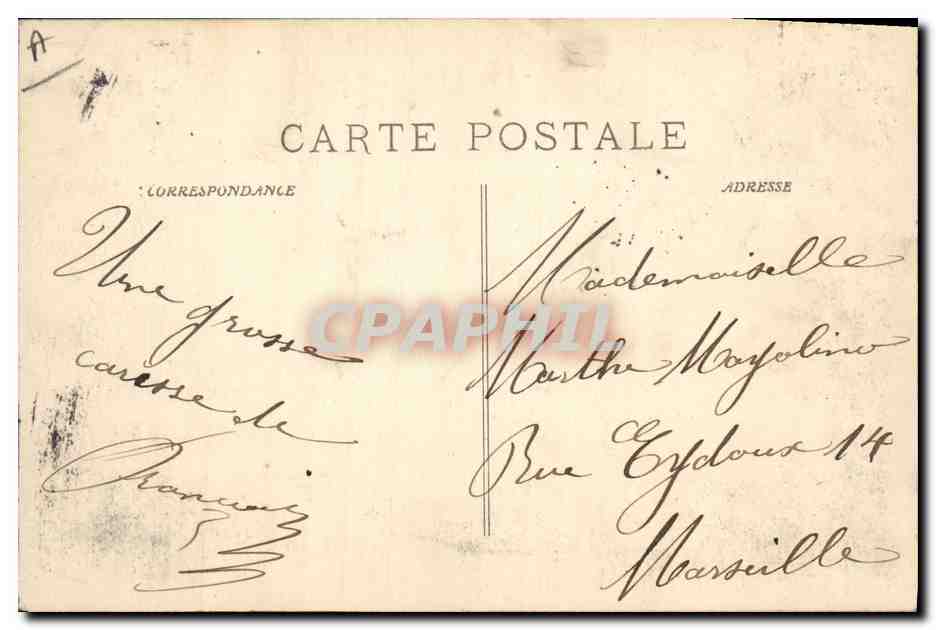 A
CARTE POSTALE
CORRESPONDANCE
ADRESSE
Une grosse
caresse de
François
Mademoiselle
Marthe Mayolino
Rue Eydoux 14
Marseille
CPAPHIL